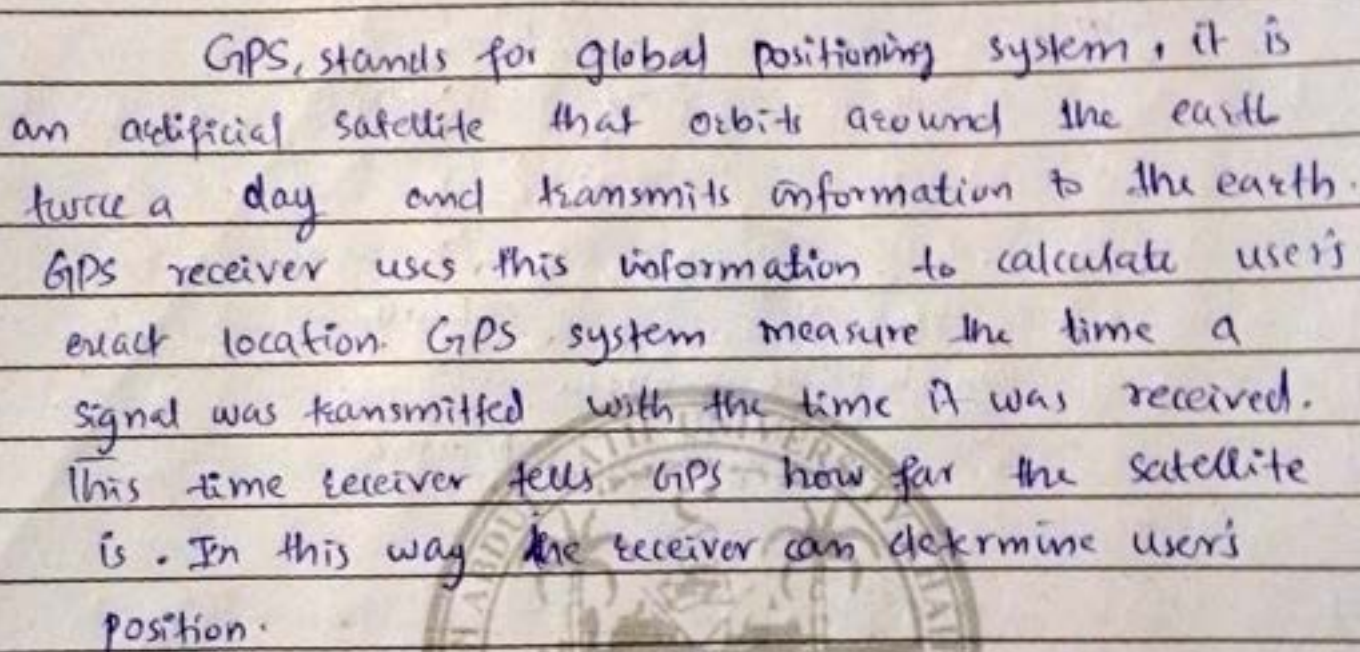 GPS, stands for global positioning system, it is
an artificial satellite that orbits around the earth
twice a day and transmits information to the earth.
GPS receiver uses this information to calculate user's
exact location. GPS system measure the time a
signal was transmitted with the time it was received.
This time receiver tells GPS how far the satellite
is. In this way the receiver can determine user's
position.
H ABDU LATIF UNIVERSITY KHAI